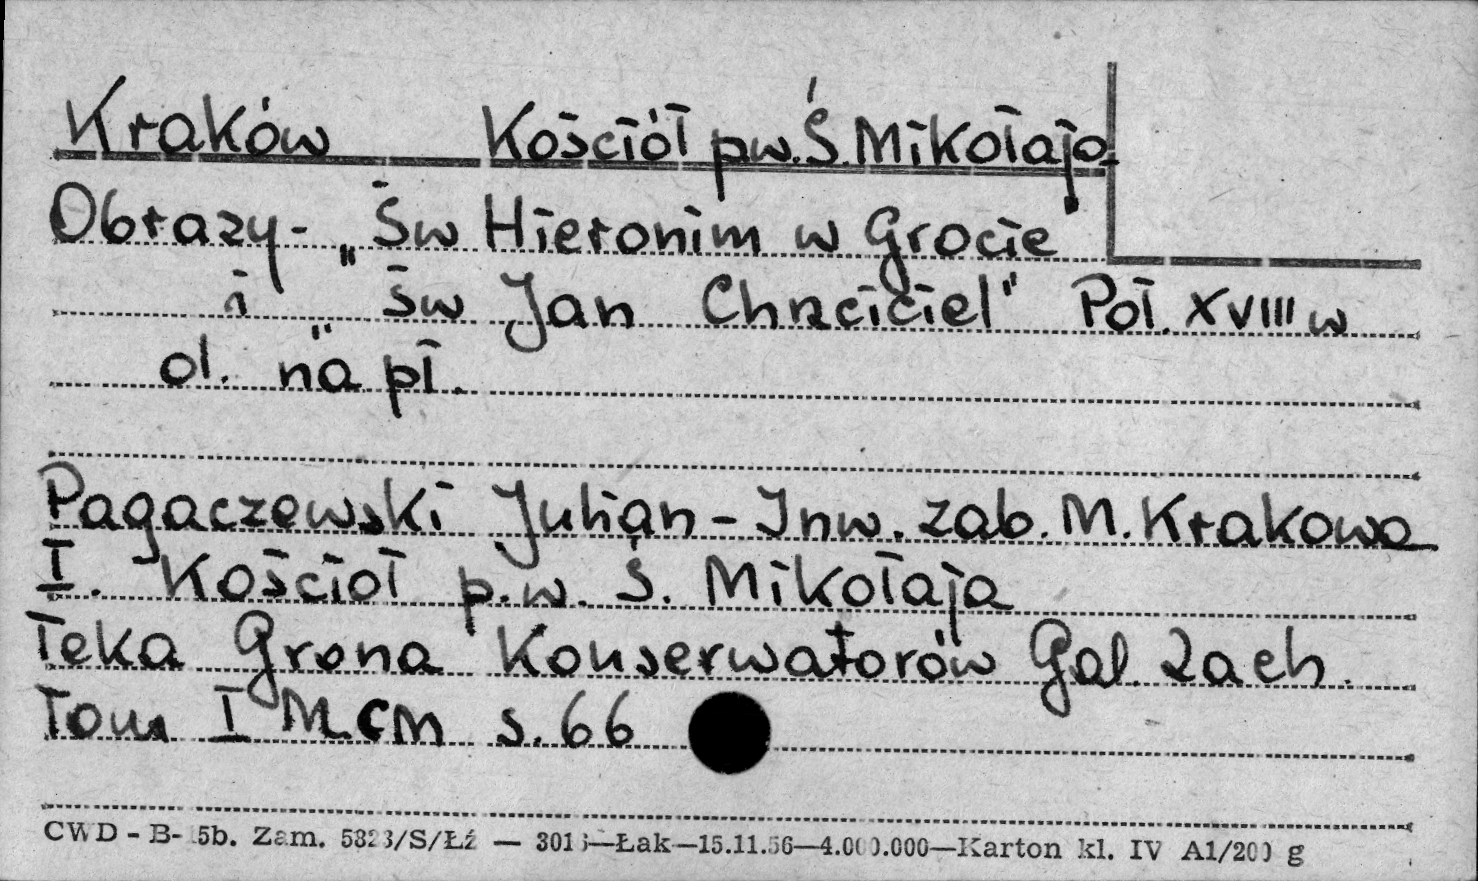 Kraków Kościół pw. Ś. Mikołaja
Obrazy - „Św Hieronim w Grocie"
i „Św Jan Chrzciciel" Poł. XVIII w
ol. na pł.
Pagaczewski Julian - Inw. zab. M. Krakowa
I. Kościoł p.w. Ś. Mikołaja
Teka Grona Konserwatorów Gal. Zach.
Tom I MCM s. 66
CWD - B- 5b. Zam. 5823/S/Łź — 3013—Łak—15.11.56—4.000.000—Karton kl. IV A1/200 g